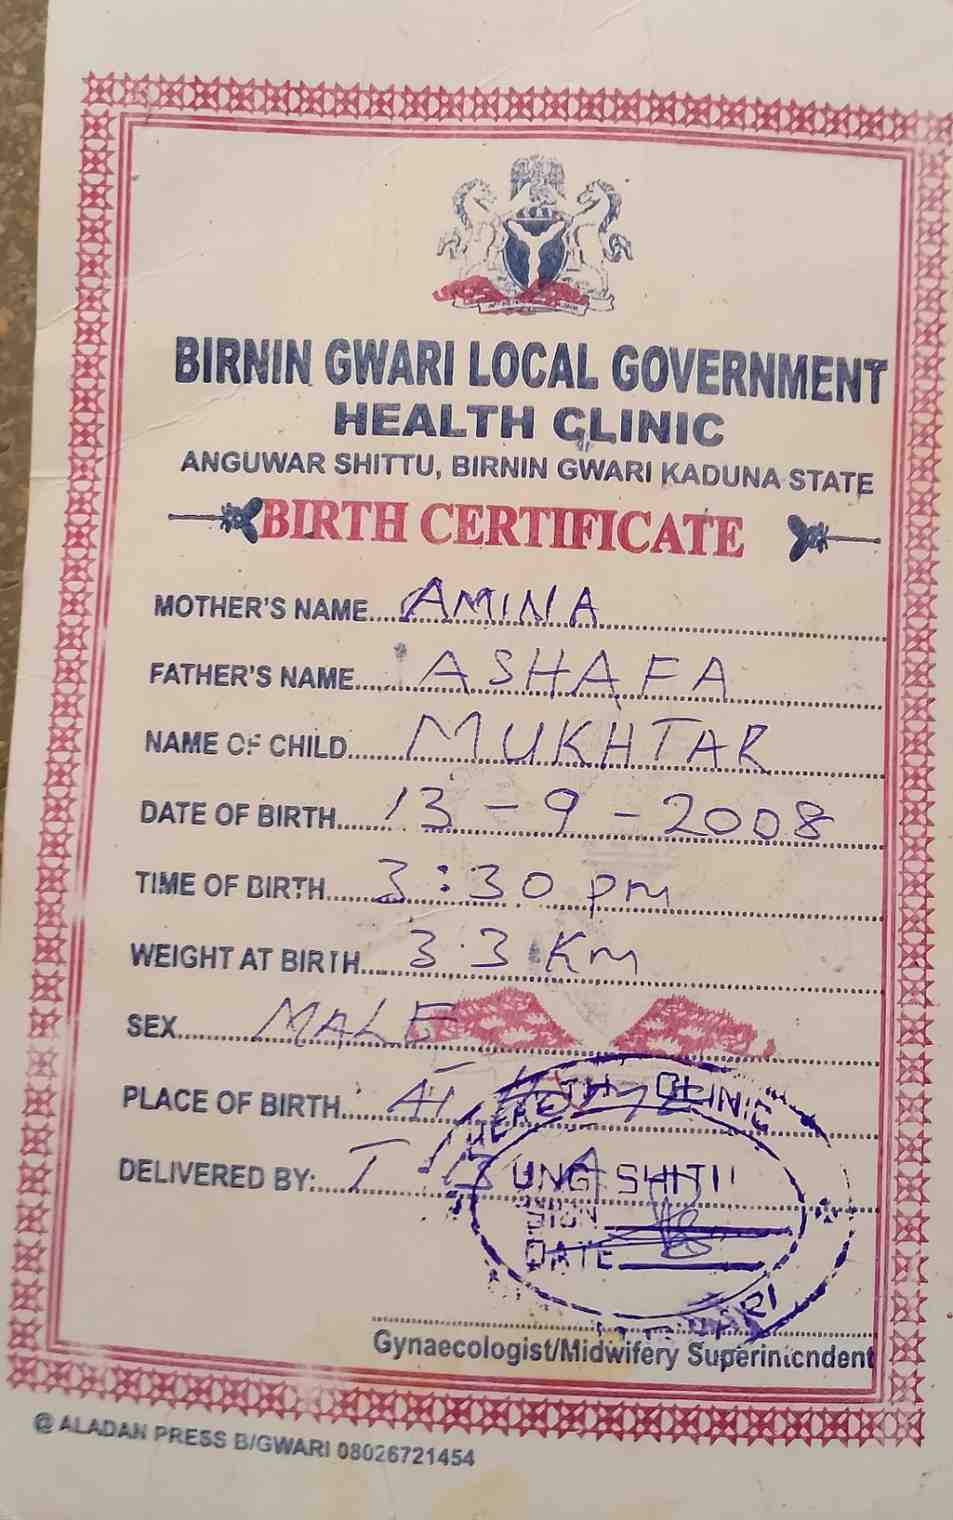 BIRNIN GWARI LOCAL GOVERNMENT
HEALTH CLINIC
ANGUWAR SHITTU, BIRNIN GWARI KADUNA STATE
BIRTH CERTIFICATE
MOTHER'S NAME....AMINA
FATHER'S NAME....ASHAFA
NAME OF CHILD....MUKHTAR
DATE OF BIRTH....13-9-2008
TIME OF BIRTH....3:30 pm
WEIGHT AT BIRTH....3.3 Km
SEX....MALE
PLACE OF BIRTH....AT
CLINIC
DELIVERED BY:....
UNG SHITU
SIGN
DATE
Gynaecologist/Midwifery Superintendent
@ ALADAN PRESS B/GWARI 08026721454